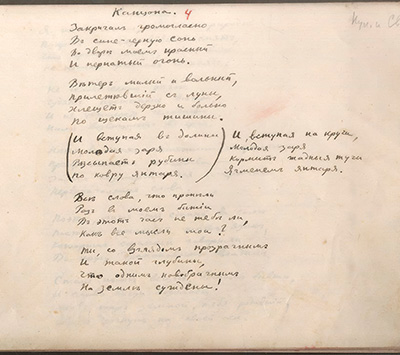 Канцона. 4
Закричалъ громогласно
Въ сине-черную сонь
На дворѣ моемъ красный
И пернатый огонь.
Вѣтеръ милый и вольный,
Прилетѣвшій съ луны,
Хлещетъ дерзко и больно
По щекамъ тишины.
(И вступая въ долины
Молодая заря
Разсыпаетъ рубины
По ковру янтаря.)
И, вступая на кручи,
Молодая заря
Кормитъ жадныя тучи
Ячменемъ янтаря.
Всѣ слова, что пропѣли
Разъ въ моемъ бытіи
Въ этотъ часъ не тебѣ ли,
Какъ всѣ мысли мои?
Ты, со взглядомъ прозрачнымъ
И такой глубины,
Что однимъ новобрачнымъ
На землѣ суждены!